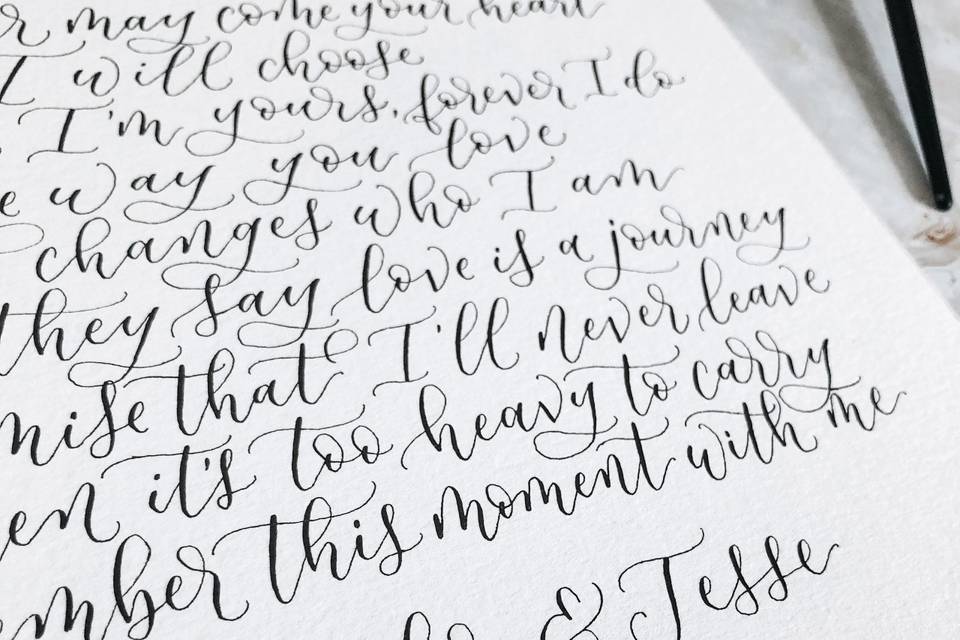 r may come your heart
I will choose
I'm yours, forever I do
e way you love
changes who I am
they say love is a journey
mise that I'll never leave
en it's too heavy to carry
mber this moment with me
& Jesse